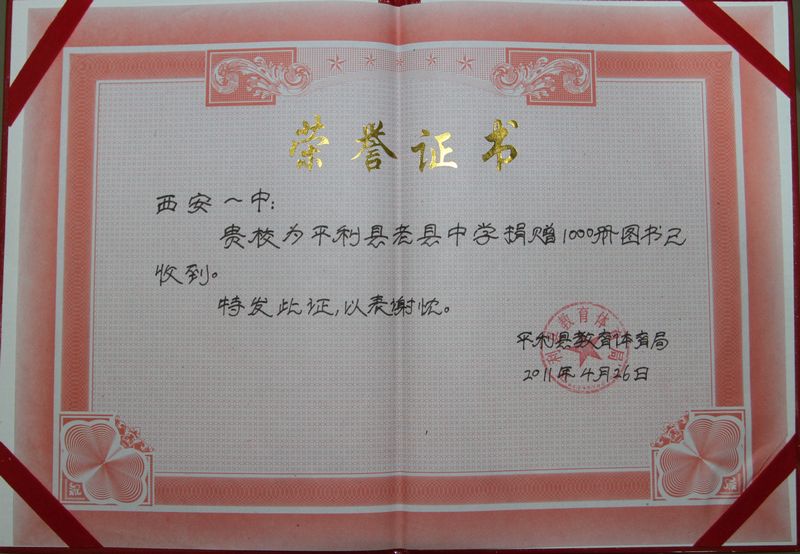 荣誉证书
西安一中:
贵校为平利县老县中学捐赠1000册图书已
收到。
特发此证,以表谢忱。
教育体
平利县教育体育局
2011年4月26日